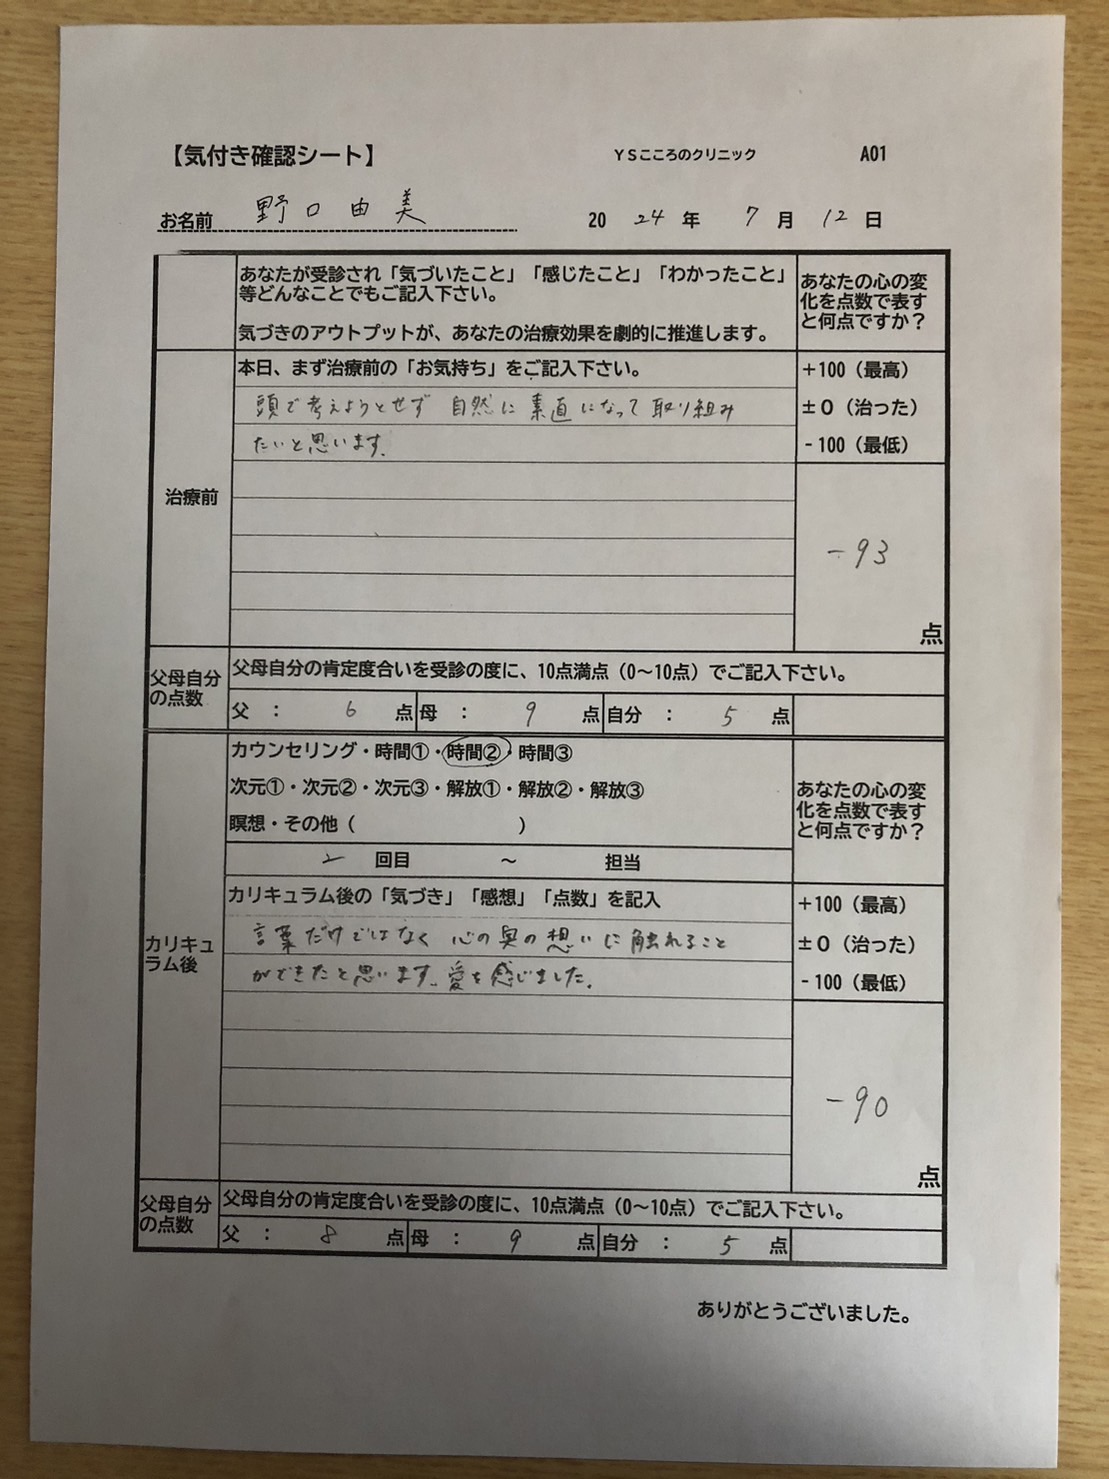 【気付き確認シート】 YSこころのクリニック A01
お名前 野口由美 2024年 7月 12日
あなたが受診され「気づいたこと」「感じたこと」「わかったこと」
等どんなことでもご記入下さい。
気づきのアウトプットが、あなたの治療効果を劇的に推進します。
あなたの心の変
化を点数で表す
と何点ですか？
治療前
本日、まず治療前の「お気持ち」をご記入下さい。
頭で考えようとせず 自然に素直になって取り組み
たいと思います。
+100（最高）
±0（治った）
-100（最低）
-93
点
父母自分
の点数
父母自分の肯定度合いを受診の度に、10点満点（0～10点）でご記入下さい。
父 ： 6 点 母 ： 9 点 自分 ： 5 点
カリキュ
ラム後
カウンセリング・時間①・時間②・時間③
次元①・次元②・次元③・解放①・解放②・解放③
瞑想・その他（ ）
2 回目 ～ 担当
あなたの心の変
化を点数で表す
と何点ですか？
カリキュラム後の「気づき」「感想」「点数」を記入
言葉だけではなく 心の奥の想いに触れること
ができたと思います。愛を感じました。
+100（最高）
±0（治った）
-100（最低）
-90
点
父母自分
の点数
父母自分の肯定度合いを受診の度に、10点満点（0～10点）でご記入下さい。
父 ： 8 点 母 ： 9 点 自分 ： 5 点
ありがとうございました。